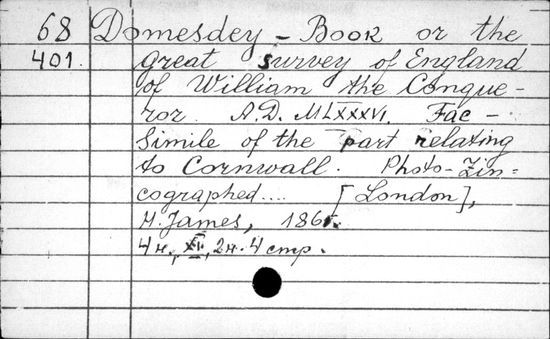 68 Domesdey-Book or the
401. great survey of England
of William the Conque-
ror. A.D. MLXXXVI. Fac-
simile of the part relating
to Cornwall. Photo-Zin=
cographed.... [London],
H. James, 1861.
4н., XI, 2н. 4 стр.